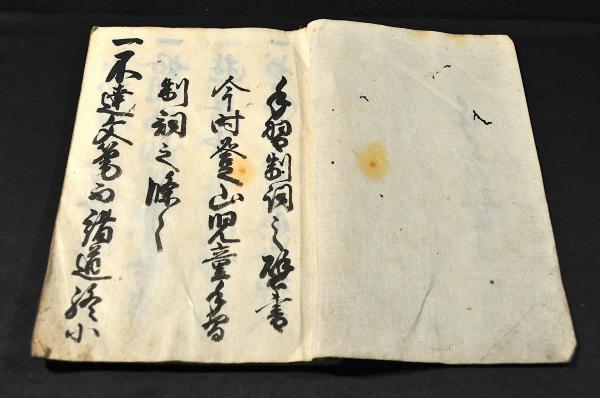 手習制詞之壁書
今時登山児童手習
制詞之條々
一不達文筆而道小